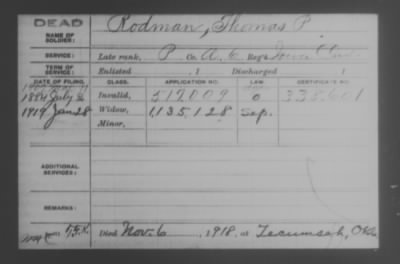 DEAD
NAME OF SOLDIER: Rodman, Thomas P.
SERVICE: Late rank, P Co. A, 6 Reg't Iowa Cav.
TERM OF SERVICE: Enlisted , 1 Discharged , 1
DATE OF FILING. CLASS. APPLICATION NO. CERTIFICATE NO.
1884 July Invalid, 517,009 338,601
1919 Jan 28 Widow, 1,135,128 Sep.
Minor,
ADDITIONAL SERVICES:
REMARKS:
Died Nov. 6, 1918, at Tecumseh, Okla